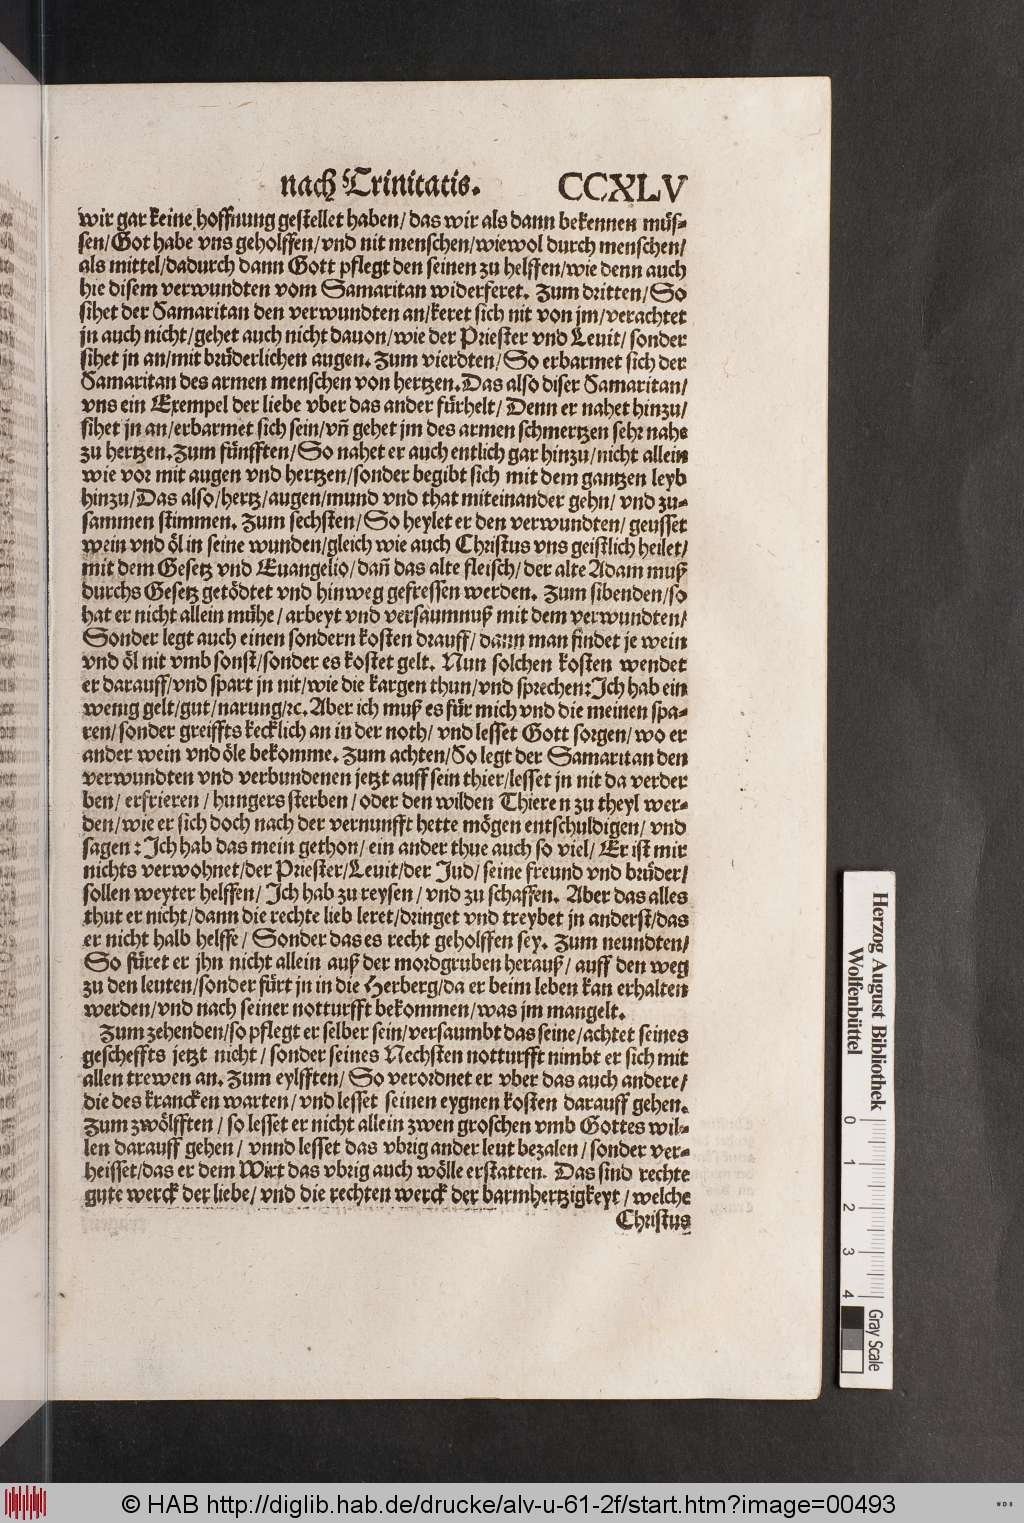 nach Trinitatis. CCXLV
wir gar keine hoffnung gestellet haben/ das wir als dann bekennen müs-
sen/ Got habe vns geholffen/ vnd nit menschen/ wiewol durch menschen/
als mittel/ dadurch dann Gott pflegt den seinen zu helffen/ wie denn auch
hie disem verwundten vom Samaritan widerferet. Zum dritten/ So
sihet der Samaritan den verwundten an/ keret sich nit von jm/ verachtet
jn auch nicht/ gehet auch nicht dauon/ wie der Priester vnd Leuit/ sonder
sihet jn an/ mit brüderlichen augen. Zum vierdten/ So erbarmet sich der
Samaritan des armen menschen von hertzen. Das also diser Samaritan/
vns ein Exempel der liebe vber das ander fürhelt/ Denn er nahet hinzu/
sihet jn an/ erbarmet sich sein/ vñ gehet jm des armen schmertzen sehr nahe
zu hertzen. Zum fünfften/ So nahet er auch entlich gar hinzu/ nicht allein
wie vor mit augen vnd hertzen/ sonder begibt sich mit dem gantzen leyb
hinzu/ Das also/ hertz/ augen/ mund vnd that miteinander gehn/ vnd zu-
sammen stimmen. Zum sechsten/ So heylet er den verwundten/ geusset
wein vnd öl in seine wunden/ gleich wie auch Christus vns geistlich heilet/
mit dem Gesetz vnd Euangelio/ dañ das alte fleisch/ der alte Adam muß
durchs Gesetz getödtet vnd hinweg gefressen werden. Zum sibenden/ so
hat er nicht allein mühe/ arbeyt vnd versaumnuß mit dem verwundten/
Sonder legt auch einen sondern kosten drauff/ dann man findet je wein
vnd öl nit vmb sonst/ sonder es kostet gelt. Nun solchen kosten wendet
er darauff/ vnd spart jn nit/ wie die kargen thun/ vnd sprechen: Ich hab ein
wenig gelt/ gut/ narung/ ꝛc. Aber ich muß es für mich vnd die meinen spa-
ren/ sonder greiffts kecklich an in der noth/ vnd lesset Gott sorgen/ wo er
ander wein vnd öle bekomme. Zum achten/ So legt der Samaritan den
verwundten vnd verbundenen jetzt auff sein thier/ lesset jn nit da verder
ben/ erfrieren/ hungers sterben/ oder den wilden Thieren zu theyl wer-
den/ wie er sich doch nach der vernunfft hette mögen entschuldigen/ vnd
sagen: Ich hab das mein gethon/ ein ander thue auch so viel/ Er ist mir
nichts verwohnet/ der Priester/ Leuit/ der Jud/ seine freund vnd brüder/
sollen weyter helffen/ Ich hab zu reysen/ vnd zu schaffen. Aber das alles
thut er nicht/ dann die rechte lieb leret/ dringet vnd treybet jn anderst/ das
er nicht halb helffe/ Sonder das es recht geholffen sey. Zum neundten/
So füret er jhn nicht allein auß der mordgruben herauß/ auff den weg
zu den leuten/ sonder fürt jn in die Herberg/ da er beim leben kan erhalten
werden/ vnd nach seiner notturfft bekommen/ was jm mangelt.
Zum zehenden/ so pflegt er selber sein/ versaumbt das seine/ achtet seines
gescheffts jetzt nicht/ sonder seines Nechsten notturfft nimbt er sich mit
allen trewen an. Zum eylfften/ So verordnet er vber das auch andere/
die des krancken warten/ vnd lesset seinen eygnen kosten darauff gehen.
Zum zwölfften/ so lesset er nicht allein zwen groschen vmb Gottes wil-
len darauff gehen/ vnnd lesset das vbrig ander leut bezalen/ sonder ver-
heisset/ das er dem Wirt das vbrig auch wölle erstatten. Das sind rechte
gute werck der liebe/ vnd die rechten werck der barmhertzigkeyt/ welche
Christus
Herzog August Bibliothek
Wolfenbüttel
0 1 2 3 4
Gray Scale
© HAB http://diglib.hab.de/drucke/alv-u-61-2f/start.htm?image=00493